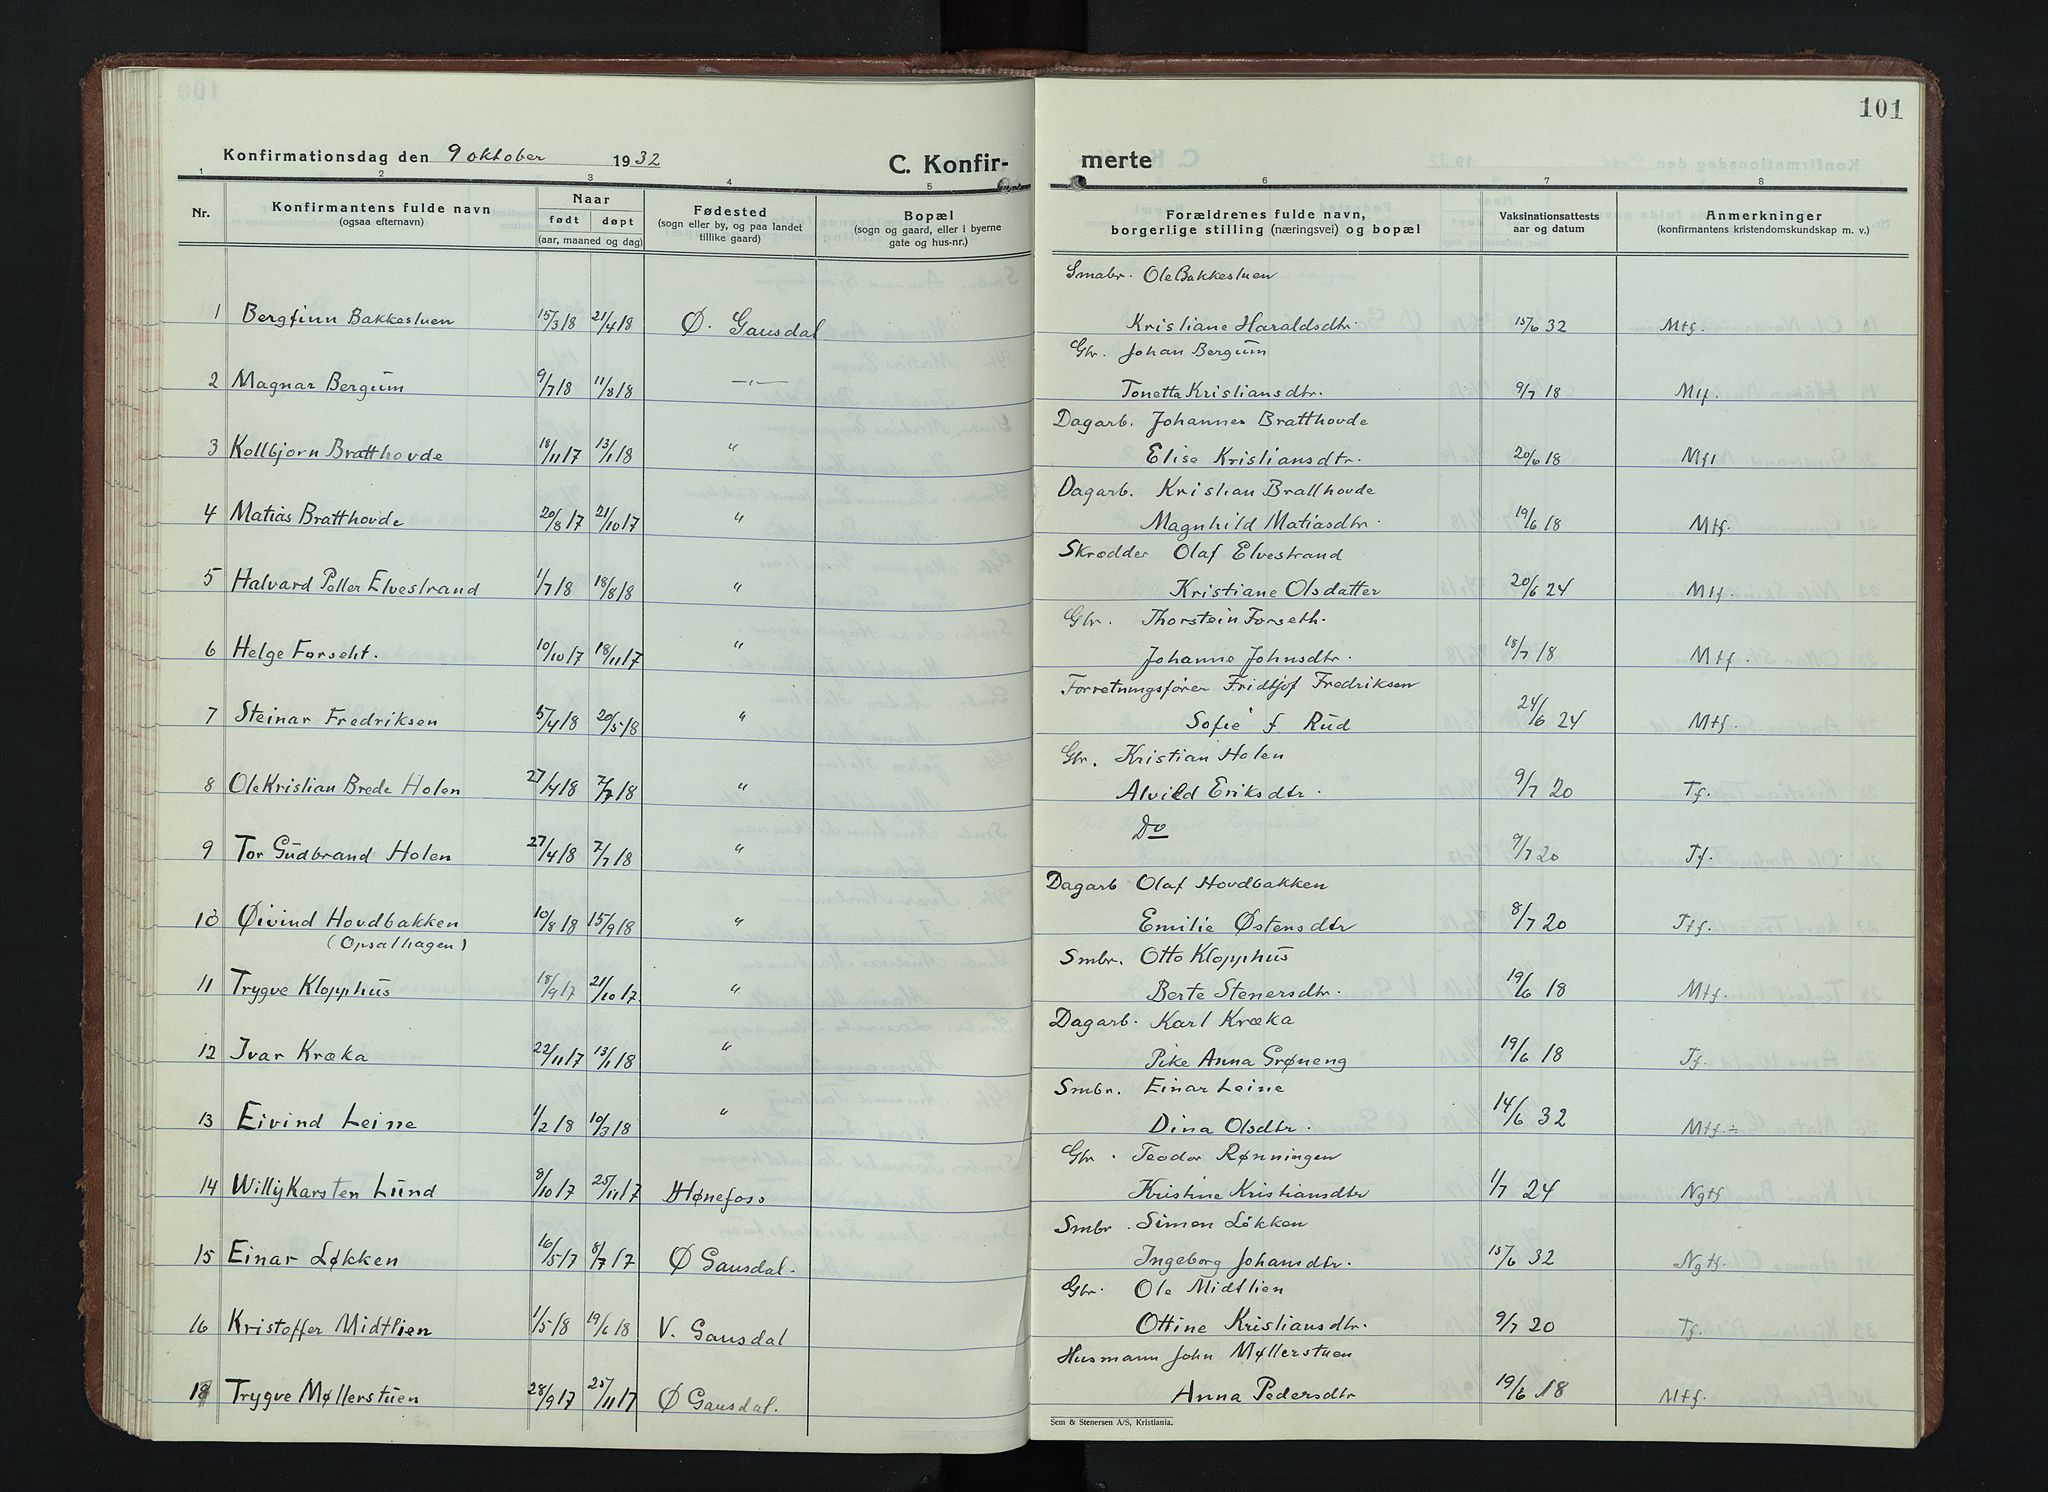 101
Konfirmationsdag den 9 oktober 1932
C. Konfir-
merte
1 2 3 4 5 6 7 8
Nr.
Konfirmantens fulde navn
(ogsaa efternavn)
Naar
født døpt
(aar, maaned og dag)
Fødested
(sogn eller by, og paa landet
tillike gaard)
Bopæl
(sogn og gaard, eller i byerne
gate og hus-nr.)
Forældrenes fulde navn,
borgerlige stilling (næringsvei) og bopæl
Vaksinationsattests
aar og datum
Anmerkninger
(konfirmantens kristendomskundskap m. v.)
Smabr. Ole Bakkestuen
1 Bergfinn Bakkestuen 15/3 18 21/4 18 Ø. Gausdal Kristiane Haraldsdtr. 15/6 32 Mtf.
Gbr. Johan Bergum
2 Magnar Bergum 9/7 18 11/8 18 —〃— Tonetta Kristiansdtr. 9/7 18 Mtf.
Dagarb. Johannes Bratthovde
3 Kollbjørn Bratthovde 18/11 17 13/1 18 〃 Elise Kristiansdtr. 20/6 18 Mtf
Dagarb. Kristian Bratthovde
4 Matias Bratthovde 20/8 17 21/10 17 〃 Magnhild Matiasdtr. 19/6 18 Mtf.
Skrædder Olaf Elvestrand
5 Halvard Petter Elvestrand 1/7 18 18/8 18 〃 Kristiane Olsdatter 20/6 24 Mtf.
Gbr. Thorstein Forseth.
6 Helge Forseht. 10/10 17 18/11 17 〃 Johanne Johnsdtr. 18/7 18 Mtf.
Forretningsfører Fridtjof Fredriksen
7 Steinar Fredriksen 5/4 18 20/5 18 〃 Sofie f Rud 24/6 24 Mtf.
Gbr. Kristian Holen
8 Ole Kristian Brede Holen 27/4 18 7/7 18 〃 Alvild Eriksdtr. 9/7 20 Tf.
Do
9 Tor Gudbrand Holen 27/4 18 7/7 18 〃 9/7 20 Tf.
Dagarb Olaf Hovdbakken
10 Øivind Hovdbakken 10/8 18 15/9 18 〃 Emilie Østensdtr 8/7 20 Ttf.
(Opsalhagen)
Smbr. Otto Klopphus
11 Trygve Klopphus 18/9 17 21/10 17. 〃 Berte Stenersdtr. 19/6 18 Mtf.
Dagarb. Karl Kræka
12 Ivar Kræka 22/11 17 13/1 18 〃 Pike Anna Grøneng 19/6 18 Tf.
Smbr. Einar Leine
13 Eivind Leine 1/2 18 10/3 18 〃 Dina Olsdtr. 14/6 32 Mtf.÷
Gbr. Teodor Rønningen
14 Willy Karsten Lund 8/10 17 25/11 17 Hønefoss Kristine Kristiansdtr 1/7 24 Ngtf
Smbr. Simen Løkken
15 Einar Løkken 16/5 17 8/7 17 Ø Gausdal. Ingeborg Johansdtr. 15/6 32 Ngtf.
Gbr. Ole Midtlien
16 Kristoffer Midtlien 1/5 18 19/6 18 V. Gausdal Ottine Kristiansdtr. 9/7 20 Tf.
Husmann John Møllerstuen
Trygve Møllerstuen 28/9 17 25/11 17 Ø Gausdal. Anna Pedersdtr 19/6 18 Mtf.
Sem & Stenersen A/S, Kristiania.